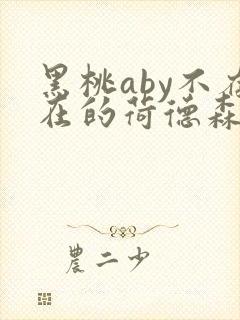 黑桃aby不存
在的荷德森
農二少